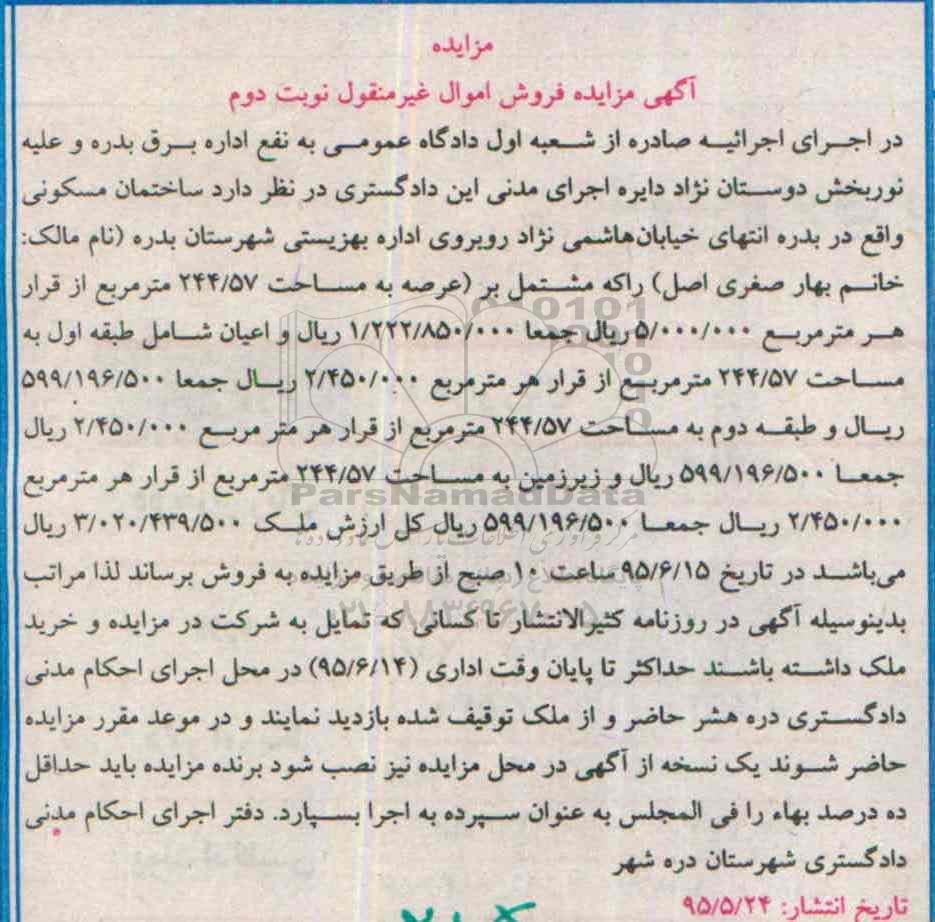 مزایده
آگهی مزایده فروش اموال غیرمنقول نوبت دوم
در اجرای اجرائیه صادره از شعبه اول دادگاه عمومی به نفع اداره برق بدره و علیه
نوربخش دوستان نژاد دایره اجرای مدنی این دادگستری در نظر دارد ساختمان مسکونی
واقع در بدره انتهای خیابان‌هاشمی نژاد روبروی اداره بهزیستی شهرستان بدره (نام مالک:
خانم بهار صفری اصل) راکه مشتمل بر (عرصه به مساحت ۲۴۴/۵۷ مترمربع از قرار
هر مترمربع ۵/۰۰۰/۰۰۰ ریال جمعا ۱/۲۲۲/۸۵۰/۰۰۰ ریال و اعیان شامل طبقه اول به
مساحت ۲۴۴/۵۷ مترمربع از قرار هر مترمربع ۲/۴۵۰/۰۰۰ ریال جمعا ۵۹۹/۱۹۶/۵۰۰
ریال و طبقه دوم به مساحت ۲۴۴/۵۷ مترمربع از قرار هر متر مربع ۲/۴۵۰/۰۰۰ ریال
جمعا ۵۹۹/۱۹۶/۵۰۰ ریال و زیرزمین به مساحت ۲۴۴/۵۷ مترمربع از قرار هر مترمربع
ParsNamadData
۲/۴۵۰/۰۰۰ ریال جمعا ۵۹۹/۱۹۶/۵۰۰ ریال کل ارزش ملک ۳/۰۲۰/۴۳۹/۵۰۰ ریال
می‌باشد در تاریخ ۹۵/۶/۱۵ ساعت ۱۰ صبح از طریق مزایده به فروش برساند لذا مراتب
بدینوسیله آگهی در روزنامه کثیرالانتشار تا کسانی که تمایل به شرکت در مزایده و خرید
ملک داشته باشند حداکثر تا پایان وقت اداری (۹۵/۶/۱۴) در محل اجرای احکام مدنی
دادگستری دره هشر حاضر و از ملک توقیف شده بازدید نمایند و در موعد مقرر مزایده
حاضر شوند یک نسخه از آگهی در محل مزایده نیز نصب شود برنده مزایده باید حداقل
ده درصد بهاء را فی المجلس به عنوان سپرده به اجرا بسپارد. دفتر اجرای احکام مدنی
دادگستری شهرستان دره شهر
تاریخ انتشار: ۹۵/۵/۲۴